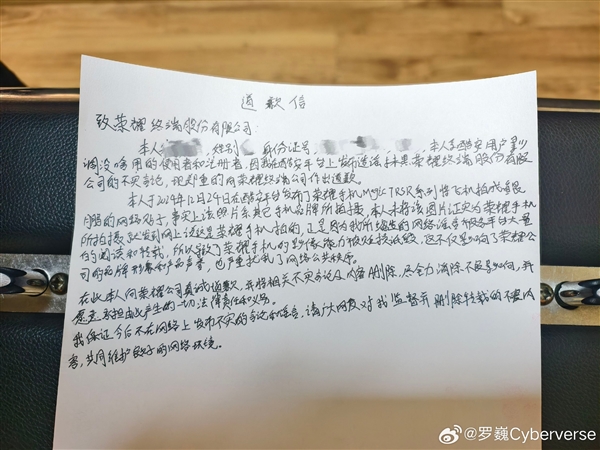 道歉信
致荣耀终端股份有限公司:
本人 性别 身份证号 , 本人是酷安用户
调没啥用的使用者和注册者,因我在酷安平台上发布造谣抹黑荣耀终端股份有限
公司的不实言论,现郑重的向荣耀终端公司作出道歉。
本人于2024年12月24日在酷安平台发布了荣耀手机Magic7RSR系列将飞机拍成
的网络帖子,事实上该照片系其他手机品牌所拍摄,本人未将该图片证实为荣耀手机
所拍摄就发到网上说这是荣耀手机拍的,正是因为我所编造的网络谣言被各平台大量
的阅读和转载,所以导致了荣耀手机的影像能力被歪技诋毁,这不仅影响了荣耀公
司的品牌形象和产品声誉,也严重扰乱了网络公共秩序。
在此本人向荣耀公司真诚道歉,并将相关不实言论及内容删除,尽全力消除不良影响,并
愿意承担由此产生的一切法律责任和义务。
我保证今后不在网络上发布不实的言论和谣言,请广大网友对我监督并删除转载的不良内
容,共同维护良好的网络环境。
@罗巍Cyberverse